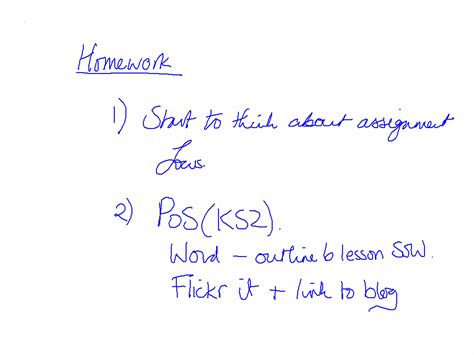 Homework
1) Start to think about assignment
focus.
2) PoS (KS2).
Word – outline 6 lesson SoW.
Flickr it + link to blog